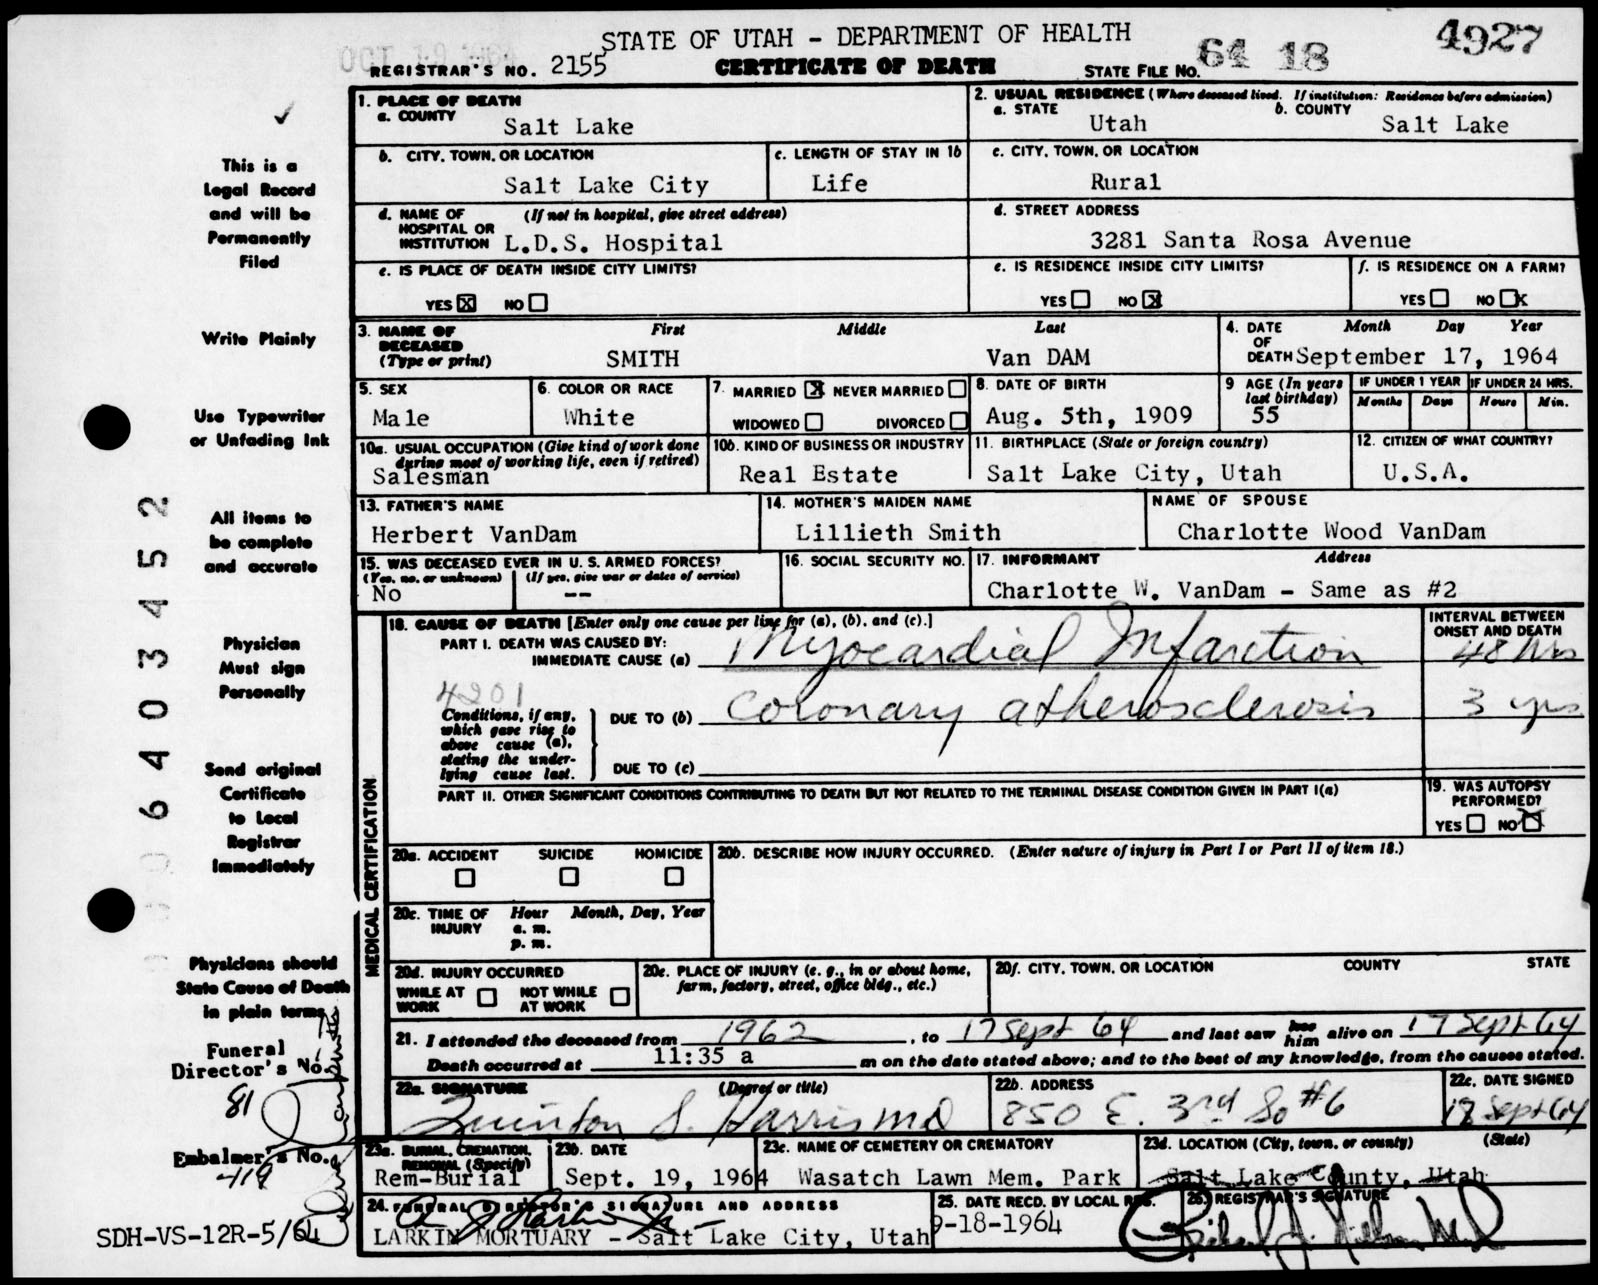 STATE OF UTAH - DEPARTMENT OF HEALTH
4927
OCT 19 1964
REGISTRAR'S NO. 2155
CERTIFICATE OF DEATH
STATE FILE NO. 64 18
This is a
Legal Record
and will be
Permanently
Filed
Write Plainly
Use Typewriter
or Unfading Ink
All items to
be complete
and accurate
Physician
Must sign
Personally
Send original
Certificate
to Local
Registrar
Immediately
Physicians should
State Cause of Death
in plain terms
Funeral
Director's No.
81
Embalmer's No.
419
SDH-VS-12R-5/64
6403452
1. PLACE OF DEATH
a. COUNTY
Salt Lake
2. USUAL RESIDENCE (Where deceased lived. If institution: Residence before admission)
a. STATE b. COUNTY
Utah Salt Lake
b. CITY, TOWN, OR LOCATION
Salt Lake City
c. LENGTH OF STAY IN 1b
Life
c. CITY, TOWN, OR LOCATION
Rural
d. NAME OF HOSPITAL OR INSTITUTION (If not in hospital, give street address)
L.D.S. Hospital
d. STREET ADDRESS
3281 Santa Rosa Avenue
e. IS PLACE OF DEATH INSIDE CITY LIMITS?
YES X NO
e. IS RESIDENCE INSIDE CITY LIMITS?
YES NO X
f. IS RESIDENCE ON A FARM?
YES NO X
3. NAME OF DECEASED (Type or print)
First Middle Last
SMITH Van DAM
4. DATE OF DEATH Month Day Year
September 17, 1964
5. SEX
Male
6. COLOR OR RACE
White
7. MARRIED X NEVER MARRIED
WIDOWED DIVORCED
8. DATE OF BIRTH
Aug. 5th, 1909
9 AGE (In years last birthday)
55
IF UNDER 1 YEAR IF UNDER 24 HRS.
Months Days Hours Min.
10a. USUAL OCCUPATION (Give kind of work done during most of working life, even if retired)
Salesman
10b. KIND OF BUSINESS OR INDUSTRY
Real Estate
11. BIRTHPLACE (State or foreign country)
Salt Lake City, Utah
12. CITIZEN OF WHAT COUNTRY?
U.S.A.
13. FATHER'S NAME
Herbert VanDam
14. MOTHER'S MAIDEN NAME
Lillieth Smith
NAME OF SPOUSE
Charlotte Wood VanDam
15. WAS DECEASED EVER IN U. S. ARMED FORCES?
(Yes, no, or unknown) (If yes, give war or dates of service)
No --
16. SOCIAL SECURITY NO.
17. INFORMANT Address
Charlotte W. VanDam - Same as #2
MEDICAL CERTIFICATION
18. CAUSE OF DEATH [Enter only one cause per line for (a), (b), and (c).]
INTERVAL BETWEEN ONSET AND DEATH
PART I. DEATH WAS CAUSED BY:
IMMEDIATE CAUSE (a) Myocardial Infarction 48 hrs
4201
Conditions, if any, which gave rise to above cause (a), stating the underlying cause last.
DUE TO (b) coronary atherosclerosis 3 yrs
DUE TO (c)
PART II. OTHER SIGNIFICANT CONDITIONS CONTRIBUTING TO DEATH BUT NOT RELATED TO THE TERMINAL DISEASE CONDITION GIVEN IN PART I(a)
19. WAS AUTOPSY PERFORMED?
YES NO X
20a. ACCIDENT SUICIDE HOMICIDE
20b. DESCRIBE HOW INJURY OCCURRED. (Enter nature of injury in Part I or Part II of item 18.)
20c. TIME OF INJURY Hour Month, Day, Year
a. m.
p. m.
20d. INJURY OCCURRED
WHILE AT WORK NOT WHILE AT WORK
20e. PLACE OF INJURY (e. g., in or about home, farm, factory, street, office bldg., etc.)
20f. CITY, TOWN, OR LOCATION COUNTY STATE
21. I attended the deceased from 1962, to 17 Sept 64 and last saw him alive on 17 Sept 64
Death occurred at 11:35 a m on the date stated above; and to the best of my knowledge, from the causes stated.
22a. SIGNATURE (Degree or title)
Quinton S. Harris MD
22b. ADDRESS
850 E. 3rd So #6
22c. DATE SIGNED
18 Sept 64
23a. BURIAL, CREMATION, REMOVAL (Specify)
Rem-Burial
23b. DATE
Sept. 19, 1964
23c. NAME OF CEMETERY OR CREMATORY
Wasatch Lawn Mem. Park
23d. LOCATION (City, town, or county) (State)
Salt Lake County, Utah
24. FUNERAL DIRECTOR'S SIGNATURE AND ADDRESS
LARKIN MORTUARY - Salt Lake City, Utah
25. DATE RECD. BY LOCAL REG.
9-18-1964
26. REGISTRAR'S SIGNATURE